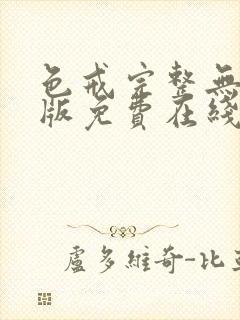 色戒完整無
版免費在綫
盧多維奇-比